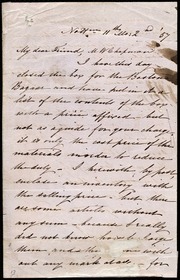 11th
My dear Friend, M W Chapman
I have this day
closed the box for the Boston
Bazaar and have put in it a
list of the contents of the box
with a price affixed - but
not as a guide for your charge,
it is only the cost price of the
materials in order to reduce
the duty - I herewith, by post,
enclose an inventory with
the selling price - but there
are some articles without
any sum - because I really
did not know how to charge
them - and the
not any mark at all - for